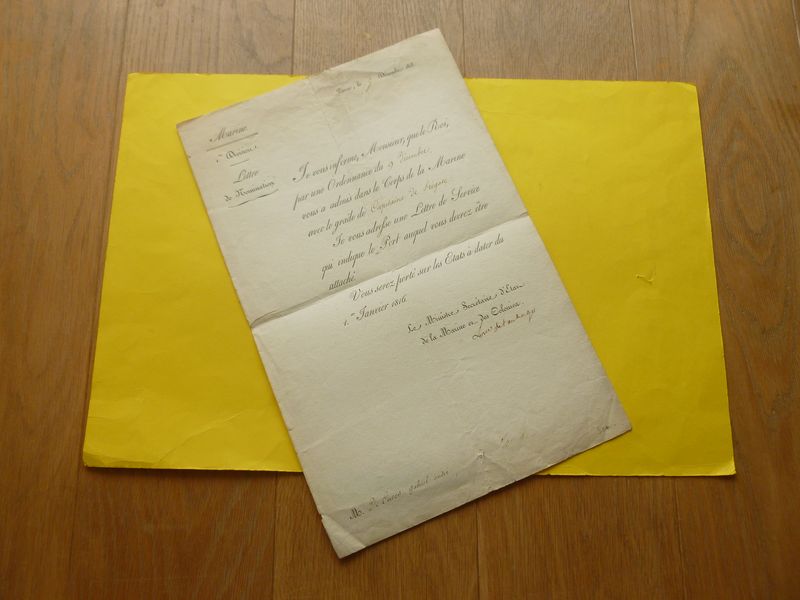 Décembre 181
Marine.
Division.
Lettre
de Nomination.
Je vous informe, Monsieur, que le Roi,
par une Ordonnance du 9 Décembre
vous a admis dans le Corps de la Marine
avec le grade de Capitaine de frégate
Je vous adresse une Lettre de Service
qui indique le Port auquel vous devez être
attaché.
Vous serez porté sur les Etats à dater du
1.er Janvier 1816.
Le Ministre Secrétaire d'Etat
de la Marine et des Colonies.
M.